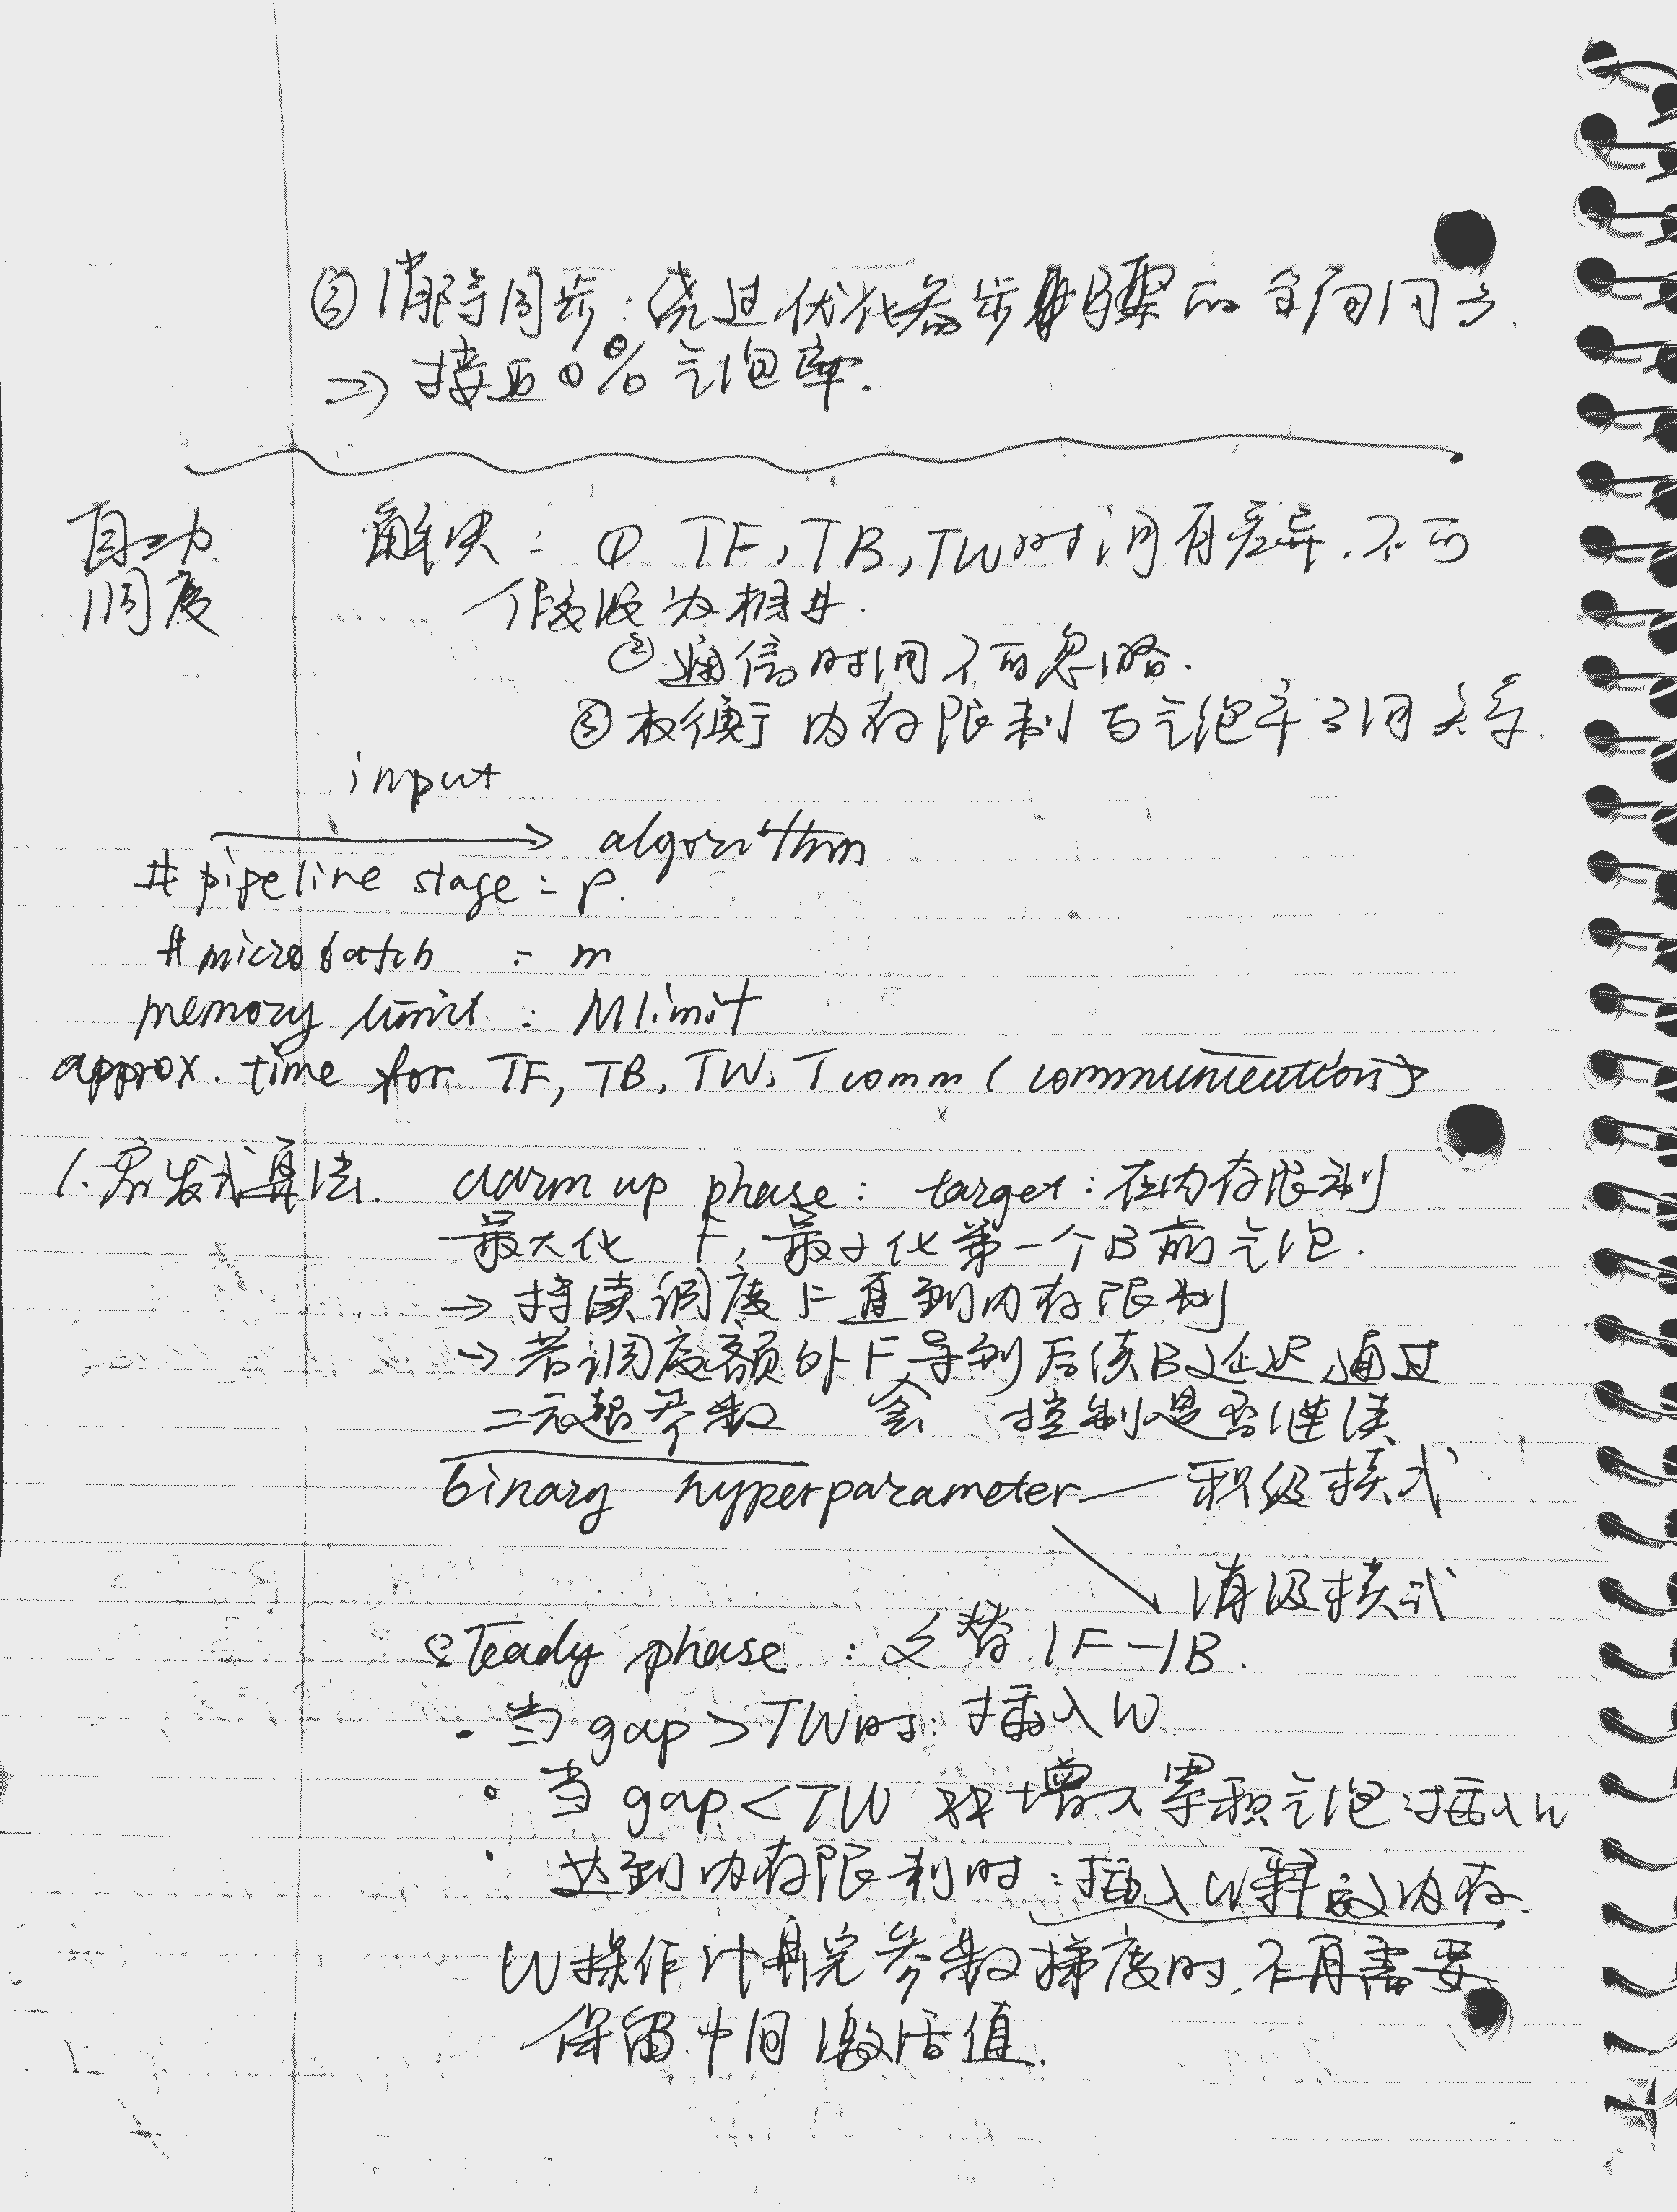 ③ 消除同步：绕过优化器步骤的全局同步.
⇒ 接近0%气泡率.
自动
调度
解决： ① TF, TB, TW时间有差异，不可
假设为相等.
② 通信时间不可忽略.
③ 权衡内存限制与气泡率之间关系.
input
→ algorithm
# pipeline stage : p.
# microbatch : m
memory limit : Mlimit
approx. time for TF, TB, TW, Tcomm (communication)
1. 启发式算法. warm up phase : target : 在内存限制
最大化 F, 最小化第一个B前气泡.
→ 持续调度F直到内存限制
→ 若调度额外F导致后续B延迟,通过
二元超参数 控制是否继续
binary hyperparameter — 积极模式
消极模式
steady phase : 交替 1F-1B.
· 当 gap > TW时: 插入W
· 当 gap < TW 增大累积气泡:插入W
· 达到内存限制时:插入W释放内存.
W操作计算完参数梯度时,不再需要
保留中间激活值.